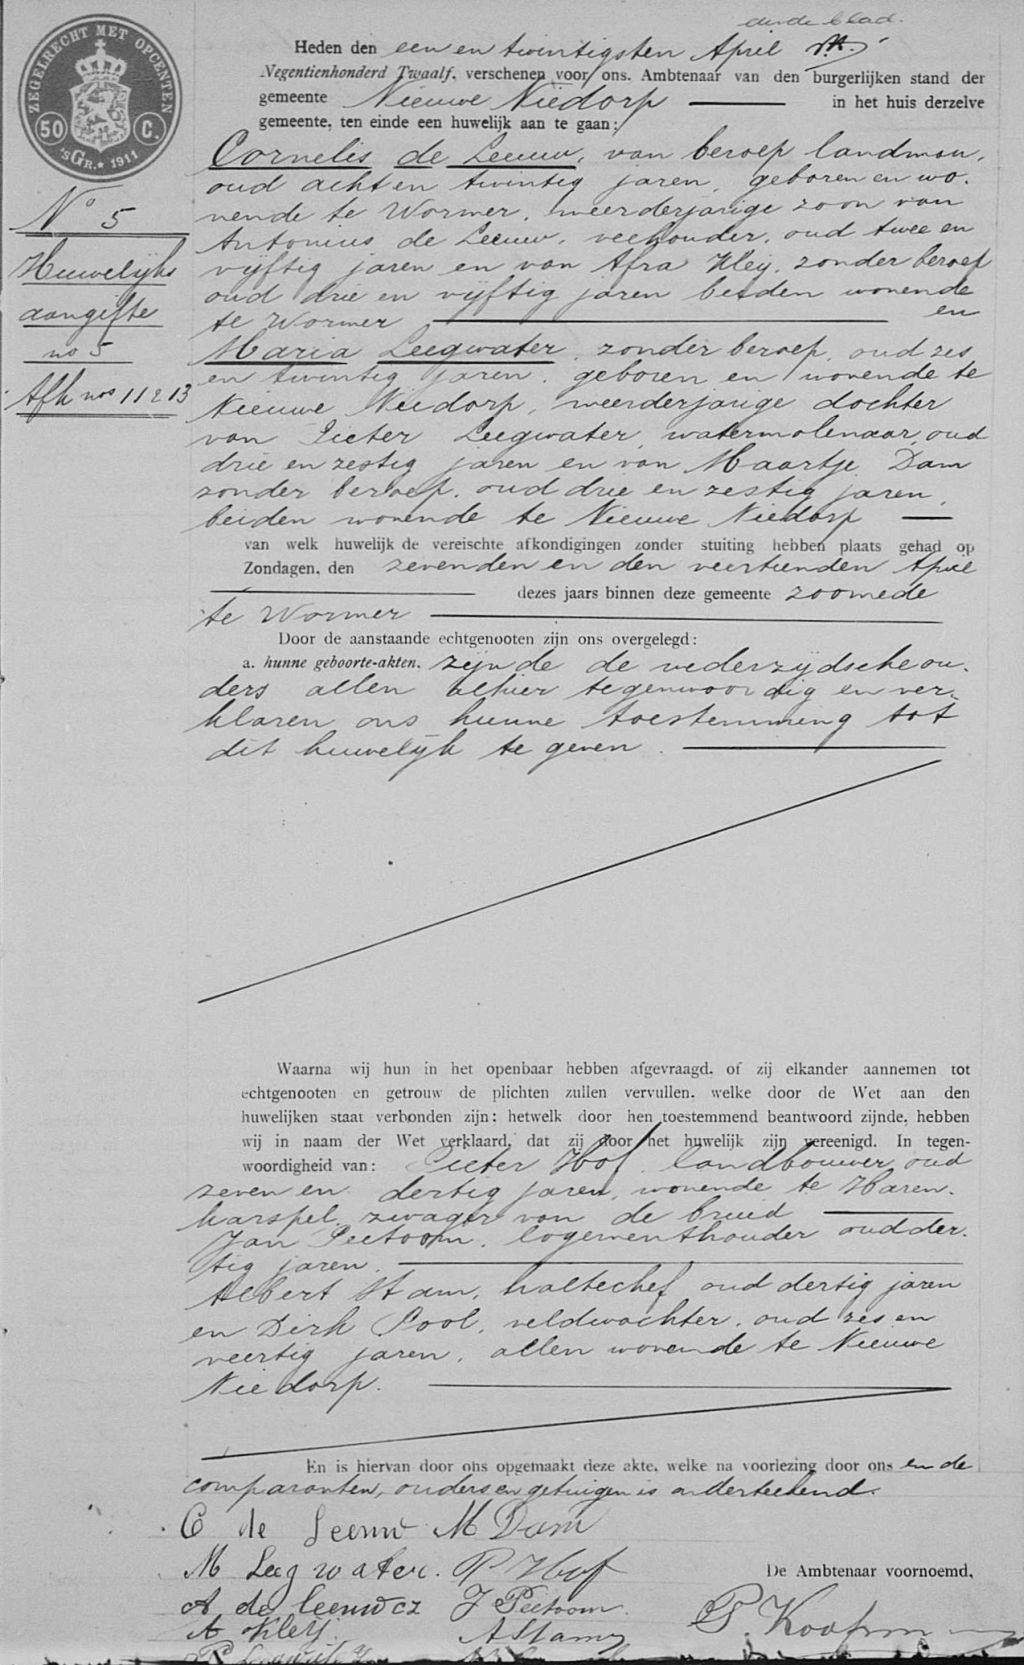 derde blad.
ZEGELRECHT MET OPCENTEN
50 C.
'sGR. * 1911
Heden den een en twintigsten April
Negentienhonderd Twaalf, verschenen voor ons, Ambtenaar van den burgerlijken stand der
gemeente Nieuwe Niedorp in het huis derzelve
gemeente, ten einde een huwelijk aan te gaan:
Cornelis de Leeuw, van beroep landman,
oud acht en twintig jaren, geboren en wo-
nende te Wormer, meerderjarige zoon van
Antonius de Leeuw, veehouder, oud twee en
vijftig jaren en van Afra Kleij, zonder beroep
oud drie en vijftig jaren beiden wonende
te Wormer en
Maria Leegwater, zonder beroep, oud zes
en twintig jaren, geboren en wonende te
Nieuwe Niedorp, meerderjarige dochter
van Pieter Leegwater, watermolenaar, oud
drie en zestig jaren en van Maartje Dam
zonder beroep, oud drie en zestig jaren,
beiden wonende te Nieuwe Niedorp
van welk huwelijk de vereischte afkondigingen zonder stuiting hebben plaats gehad op
Zondagen, den zevenden en den veertienden April
dezes jaars binnen deze gemeente zoomede
te Wormer
Door de aanstaande echtgenooten zijn ons overgelegd:
a. hunne geboorte-akten, zijnde de wederzijdsche ou-
ders allen alhier tegenwoordig en ver-
klaren ons hunne toestemming tot
dit huwelijk te geven.
No 5
Huwelijks
aangifte
no 5
Afk nos 11 & 13
Waarna wij hun in het openbaar hebben afgevraagd, of zij elkander aannemen tot
echtgenooten en getrouw de plichten zullen vervullen, welke door de Wet aan den
huwelijken staat verbonden zijn: hetwelk door hen toestemmend beantwoord zijnde, hebben
wij in naam der Wet verklaard, dat zij door het huwelijk zijn vereenigd. In tegen-
woordigheid van: Pieter Hof, landbouwer, oud
zeven en dertig jaren, wonende te Haren-
karspel, zwager van de bruid
Jan Peetoom, logementhouder oud der-
tig jaren.
Albert Stam, haltechef, oud dertig jaren
en Dirk Pool, veldwachter, oud zes en
veertig jaren, allen wonende te Nieuwe
Niedorp.
En is hiervan door ons opgemaakt deze akte, welke na voorlezing door ons en de
comparanten, ouders en getuigen is onderteekend.
C de Leeuw M Dam
M Leegwater. P Hof
De Ambtenaar voornoemd,
A de Leeuw Cz J Peetoom.
A Kleij. A Stam
P. Koopman
P Leegwater